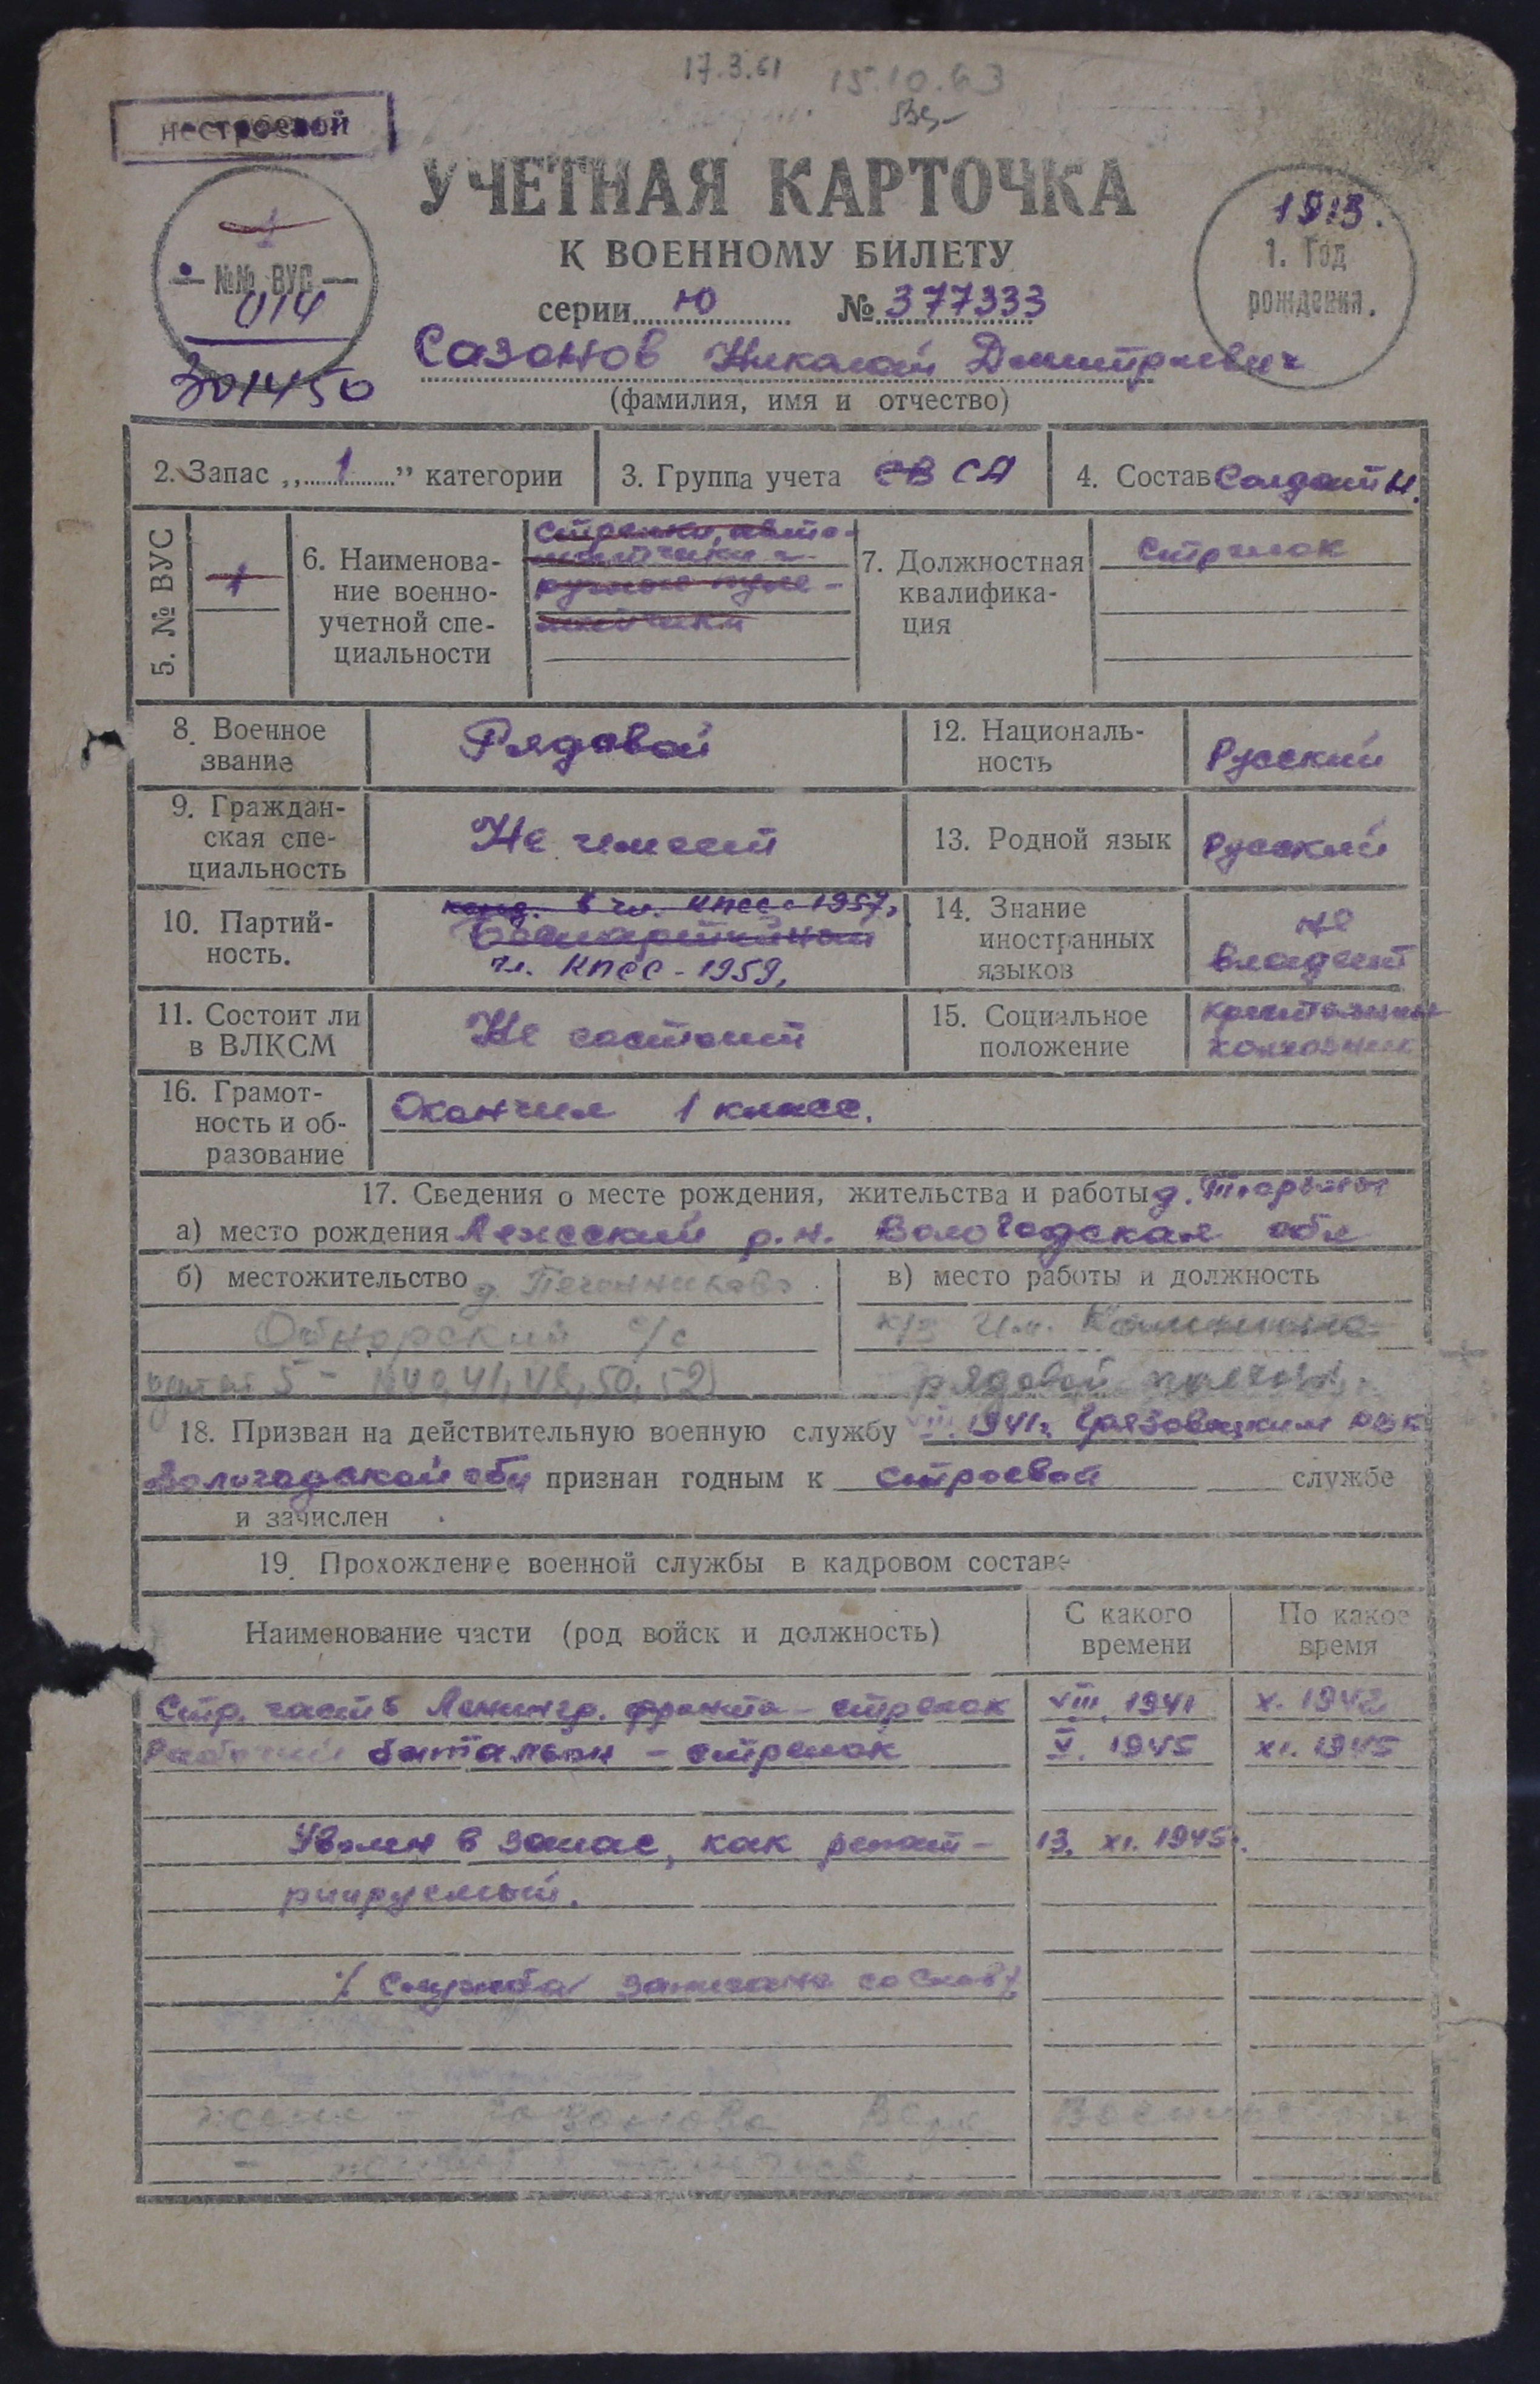 17.3.61 15.10.63
нестроевой
УЧЕТНАЯ КАРТОЧКА
К ВОЕННОМУ БИЛЕТУ
серии Ю № 377333
№№ ВУС
014
301450
1913.
1. Год
рождения.
Сазонов Николай Дмитриевич
(фамилия, имя и отчество)
2. Запас „1” категории
3. Группа учета СВ СА
4. Состав Солдат Н.
5. № ВУС
1
6. Наименова-
ние военно-
учетной спе-
циальности
Стрелки, авто-
матчики и
ручные пуле-
метчики
7. Должностная
квалифика-
ция
Стрелок
8. Военное
звание
Рядовой
12. Националь-
ность
Русский
9. Граждан-
ская спе-
циальность
Не имеет
13. Родной язык
Русский
10. Партий-
ность.
канд. в чл. КПСС - 1957,
Беспартийный
чл. КПСС - 1959,
14. Знание
иностранных
языков
не
владеет
11. Состоит ли
в ВЛКСМ
Не состоит
15. Социальное
положение
крестьянин
колхозник
16. Грамот-
ность и об-
разование
Окончил 1 класс.
17. Сведения о месте рождения, жительства и работы д.
а) место рождения Лежский р.н. Вологодская обл
б) местожительство д.
Обнорский с/с
5 - 40, 41, 48, 50, 52)
в) место работы и должность
к/з им. Калинина
рядовой
18. Призван на действительную военную службу VIII. 1941г. Грязовецким РВК
Вологодской обл признан годным к строевой службе
и зачислен
19. Прохождение военной службы в кадровом составе
Наименование части (род войск и должность)
С какого
времени
По какое
время
Стр. часть Ленингр. фронта - стрелок VIII. 1941 X. 1942
Рабочий батальон - стрелок V. 1945 XI. 1945
Уволен в запас, как репат- 13. XI. 1945г.
риируемый.
/ Служба записана со слов /
жена - Сазонова Вера